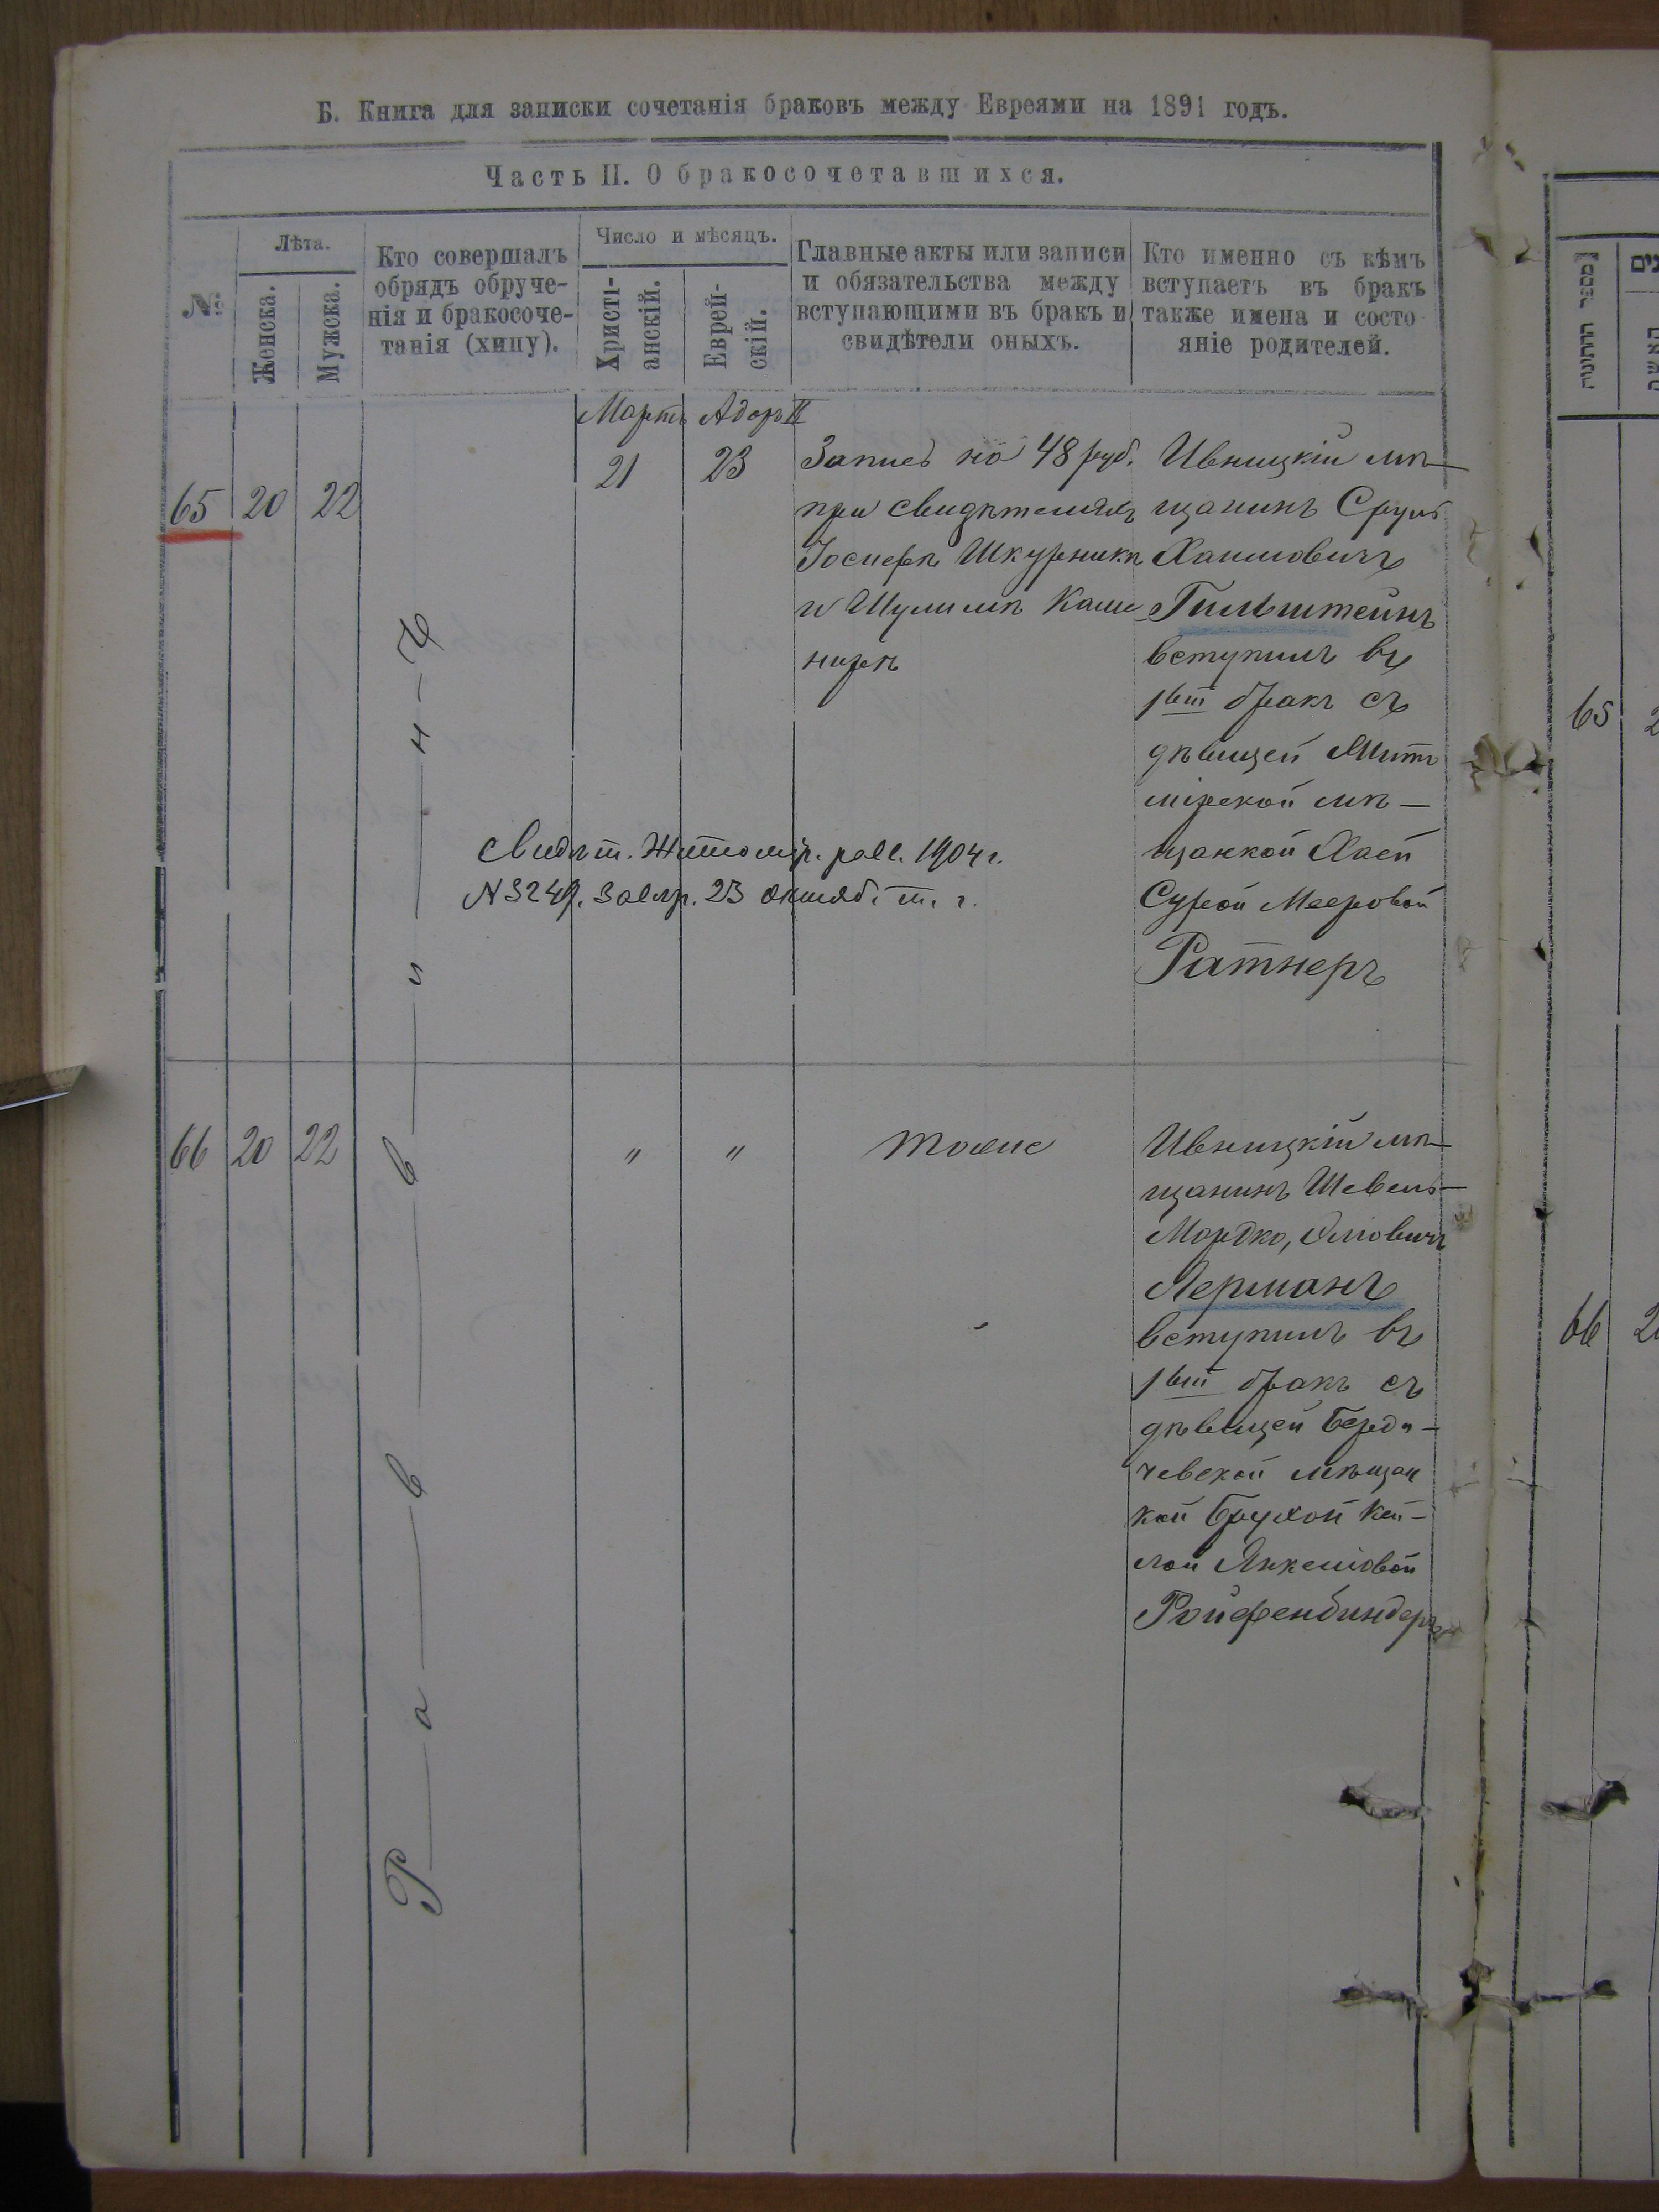 Б. Книга для записки сочетанія браковъ между Евреями на 1891 годъ.
Часть II. О бракосочетавшихся.
№
Лѣта.
Женска.
Мужска.
Кто совершалъ
обрядъ обруче-
нія и бракосоче-
танія (хипу).
Число и мѣсяцъ.
Христі-
анскій.
Еврей-
скій.
Главные акты или записи
и обязательства между
вступающими въ бракъ и
свидѣтели оныхъ.
Кто именно съ кѣмъ
вступаетъ въ бракъ
также имена и состо
яніе родителей.
Мартъ Адоръ II
65 20 22
21 23
Запись на 48 руб.
при свидѣтеляхъ
Іосифѣ Шкурникѣ
и Шулимѣ Каш
нирѣ
Ивницкій мѣ-
щанинъ Сруль
Хаимовичъ
Гильштейнъ
вступилъ въ
1вый бракъ съ
дѣвицей Жито
мірской мѣ-
щанкой Хаей
Сурой Мееровой
Ратнеръ
Свидѣт. Житомір. 1904 г.
23 октяб. т. г.
Раввинъ
66 20 22
" " тоже
Ивницкій мѣ-
щанинъ Шевель-
Мордко,
Лерманъ
вступилъ въ
1вый бракъ съ
дѣвицей Берди-
чевской мѣщан
кой Брухой Кей-
лой Янкелiовой
Ройфенбиндеръ
65 2
66 2
מספר החתונה
האשה